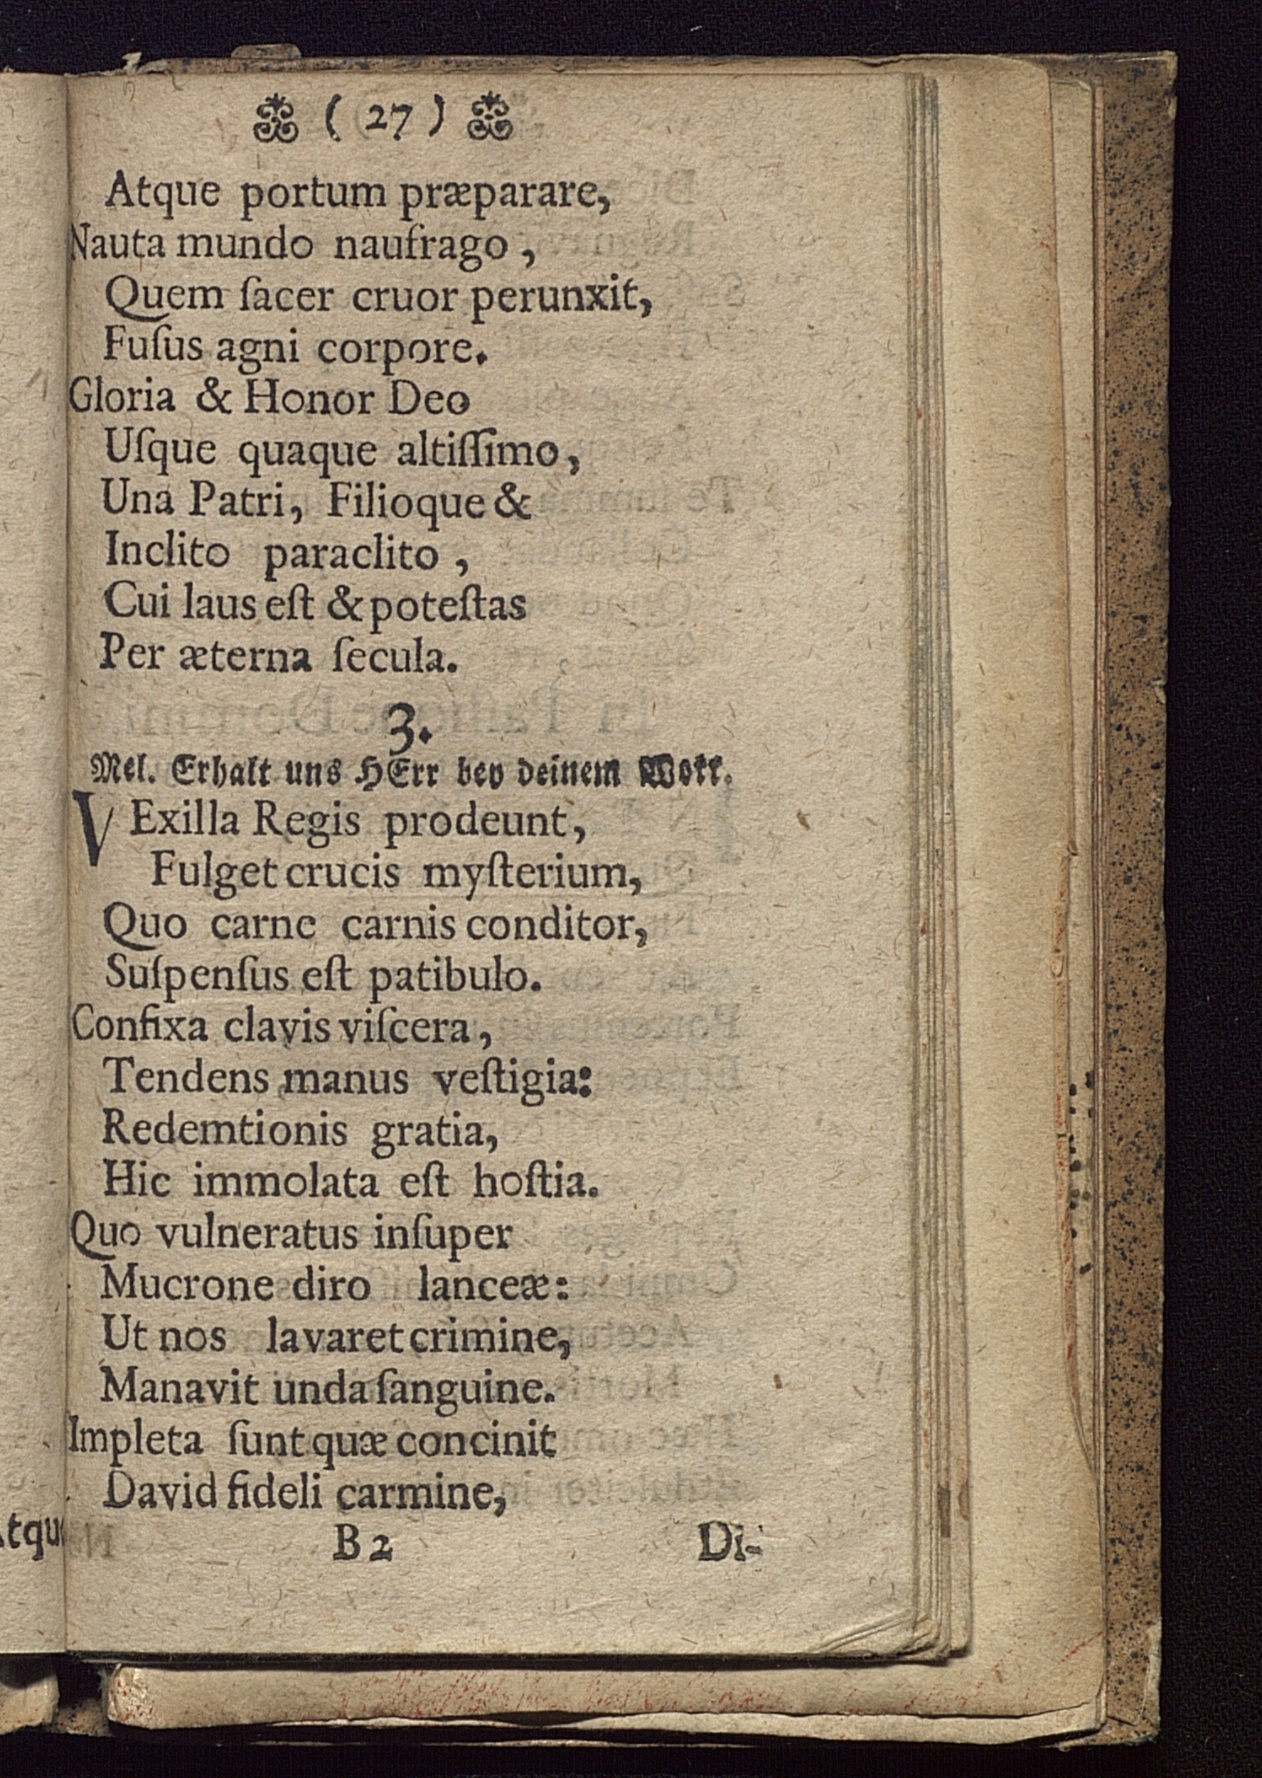 ( 27 )
Atque portum præparare,
Nauta mundo naufrago ,
Quem ſacer cruor perunxit,
Fuſus agni corpore.
Gloria & Honor Deo
Uſque quaque altiſſimo,
Una Patri, Filioque &
Inclito paraclito ,
Cui laus eſt & poteſtas
Per æterna ſecula.
3.
Mel. Erhalt uns HErr bey deinem Wort.
VExilla Regis prodeunt,
Fulget crucis myſterium,
Quo carne carnis conditor,
Suſpenſus eſt patibulo.
Confixa clavis viſcera,
Tendens manus veſtigia:
Redemtionis gratia,
Hic immolata eſt hoſtia.
Quo vulneratus inſuper
Mucrone diro lanceæ:
Ut nos lavaret crimine,
Manavit unda ſanguine.
Impleta ſunt quæ concinit
David fideli carmine,
B 2 Di-